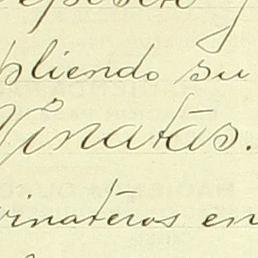 pliendo su
Vinatas.
vinateros en